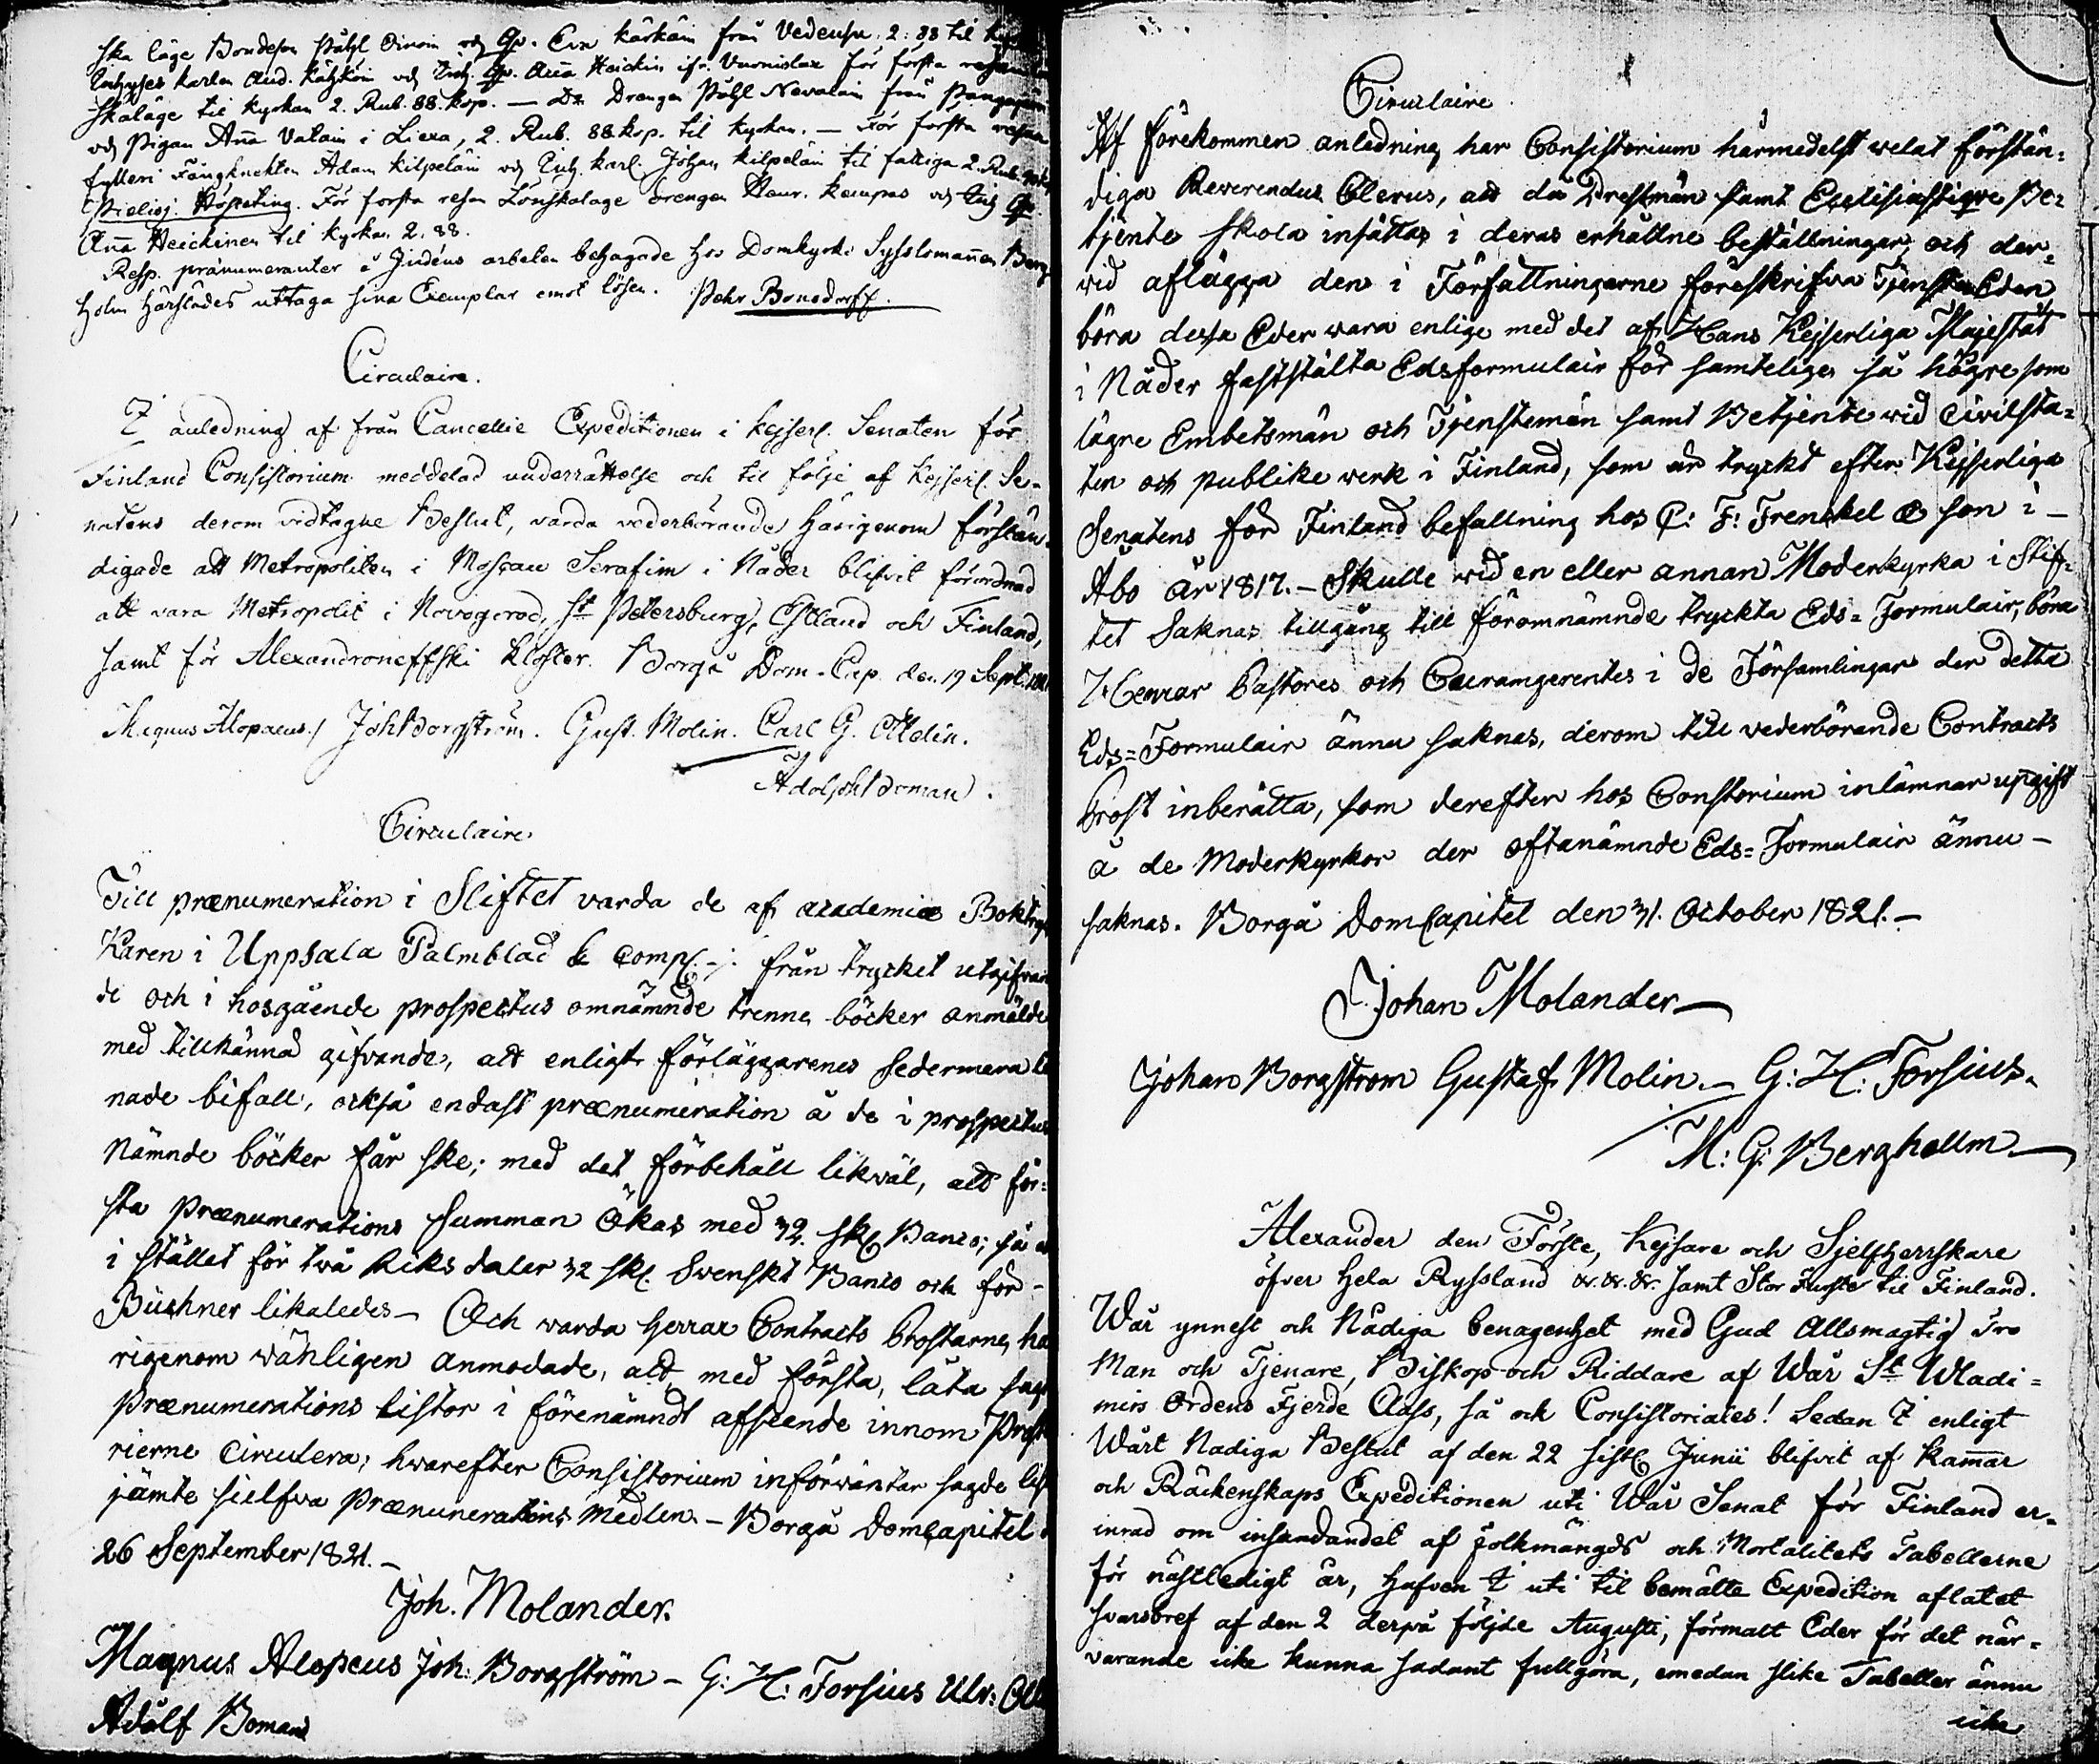 ska läge Bondeson Påhl och Qv. Eva Kärkäin från Vedensu. 2: 88 til
Karlen And. och Anna Heickin för första
skaläge til kyrkan 2. Rub. 88. kop. — Dr Drengen Påhl Nevalain från
och Pigan Anna Vatain i Liexa, 2. Rub. 88 kop. til kyrkan. — För första resan
fylleri Fångknekten Adam Kilpeläin och Enk. karl. Johan Kilpeläin til fattiga 2. Rub.
Pielisj. Höpeting. För forsta resan Lönskalage drengen Kempas och
Anna Heickinen til kyrkan 2. 88.
Resp. pränumeranter å Judéns arbeten behagade hos Domkyrko Sysslomannen Berg
holm härstädes uttaga sina Exemplar emot lösen. Pehr Bonsdorff.
Circulaire.
I anledning af från Cancellie Expeditionen i Kejserl. Senaten för
Finland Consistorium meddelad underrättelse och til följe af Kejserl. Se-
natens derom vidtagne Beslut, varda vederbörande härigenom förstän-
digade att Metropoliten i Moscau Serafim i Nåder blifvit förordnad
att vara Metropolit i Novogorod, St Petersburg, Estland och Finland,
samt för Alexandroneffski Kloster. Borgå Dom-Cap. den 19 Sept. 1821
Magnus Alopaeus./ Joh Borgström. Gust. Molin. Carl G. Ottelin.
Adolph Boman.
Circulaire
Till prænumeration i Stiftet varda de af academiæ Boktryc
Karen i Uppsala Palmblad & Comp. -/. från trycket utgifvan
de och i hosgående prospectus omnämnde trenne böcker anmälde
med tillkännagifvande, att enligt förläggarenes sedermera
nade bifall, också endast prænumeration å de i prospectus
Nämnde böcker får ske; med det förbehåll likväl, att för-
sta Prænumerations summan Ökas med 32. sk. Banco; så
i stället för två Riksdaler 32 sk. Svenskt Banco och för -
Büchner likaledes — Och warda herrar Contracts Prostarne, hä
rigenom wänligen anmodade, att med första, låta sagde
Prænumerations listor i förenämndt afseende innom Prost
rierne circulera; hwarefter Consistorium införwäntar sagde list
jämte sielfva Prænumerations medlen — Borgå Domcapitel
26 September 1821. —
Joh. Molander.
Magnus Alopeus Joh: Borgström — G: H: Forsius Ulr:
Adolf Boman
Circulaire
Af förekommen anledning har Consistorium härmedelst welat förstän-
diga Reverendus Clerus, att då Prestmän samt Ecclisiastiqve Be-
tjente skola insättas i deras erhållne beställningar, och der-
vid aflägga den i Författningarne föreskrifva Tjenste Eden
böra dessa Eder wara enlige med det af Hans Kejserliga Majestät
i Nåder faststälta Edsformulair för samtelige så högre som
lägre Embetsmän och Tjenstemän samt Betjente wid Civilsta-
ten och publike werk i Finland, som är tryckt efter Kejserliga
Senatens för Finland befallning hos C: F: Frenckel & son i —
Åbo år 1817. — Skulle wid en eller annan Moderkyrka i Stif-
tet Saknas tillgång till föromnämnde tryckta Eds-Formulair, böra
Herrar Pastores och Curamgerentes i de Församlingar der detta
Eds-Formulair ännu saknas, derom till vederbörande Contracts
Prost inberätta, som derefter hos Constorium inlämnar upgift
å de Moderkyrkor der oftanämnde Eds-Formulair ännu —
saknas. Borgå DomCapitel den 31. October 1821. —
Johan Molander
Johan Borgstrom Gustaf Molin. — G: H: Forsius.
M: G: Berghellm
Alexander den Förste, Kejsare och Sjelfherrskare
öfver hela Ryssland &. &. &. samt Stor Furste til Finland.
Wår ynnest och Nådiga benägenhet med Gud Allsmägtig Tro
Man och Tjenare, Biskop och Riddare af Wår St Wladi-
mirs Ordens Fjerde Class, så ock Consistoriales! Sedan I enligt
Wårt Nadiga Beslut af den 22 sistl Junii blifvit af Kammar
och Räckenskaps Expeditionen uti Wår Senat för Finland er-
inrad om insändandet af folkmängds och Mortalitets Tabellerne
för nästledigt år, hafven I uti til bemälte Expedition aflatet
svarsbref af den 2 derpå följde Augusti, förmält Eder för det när-
varande icke kunna sådant fullgöra, emedan slike Tabeller ännu
icke